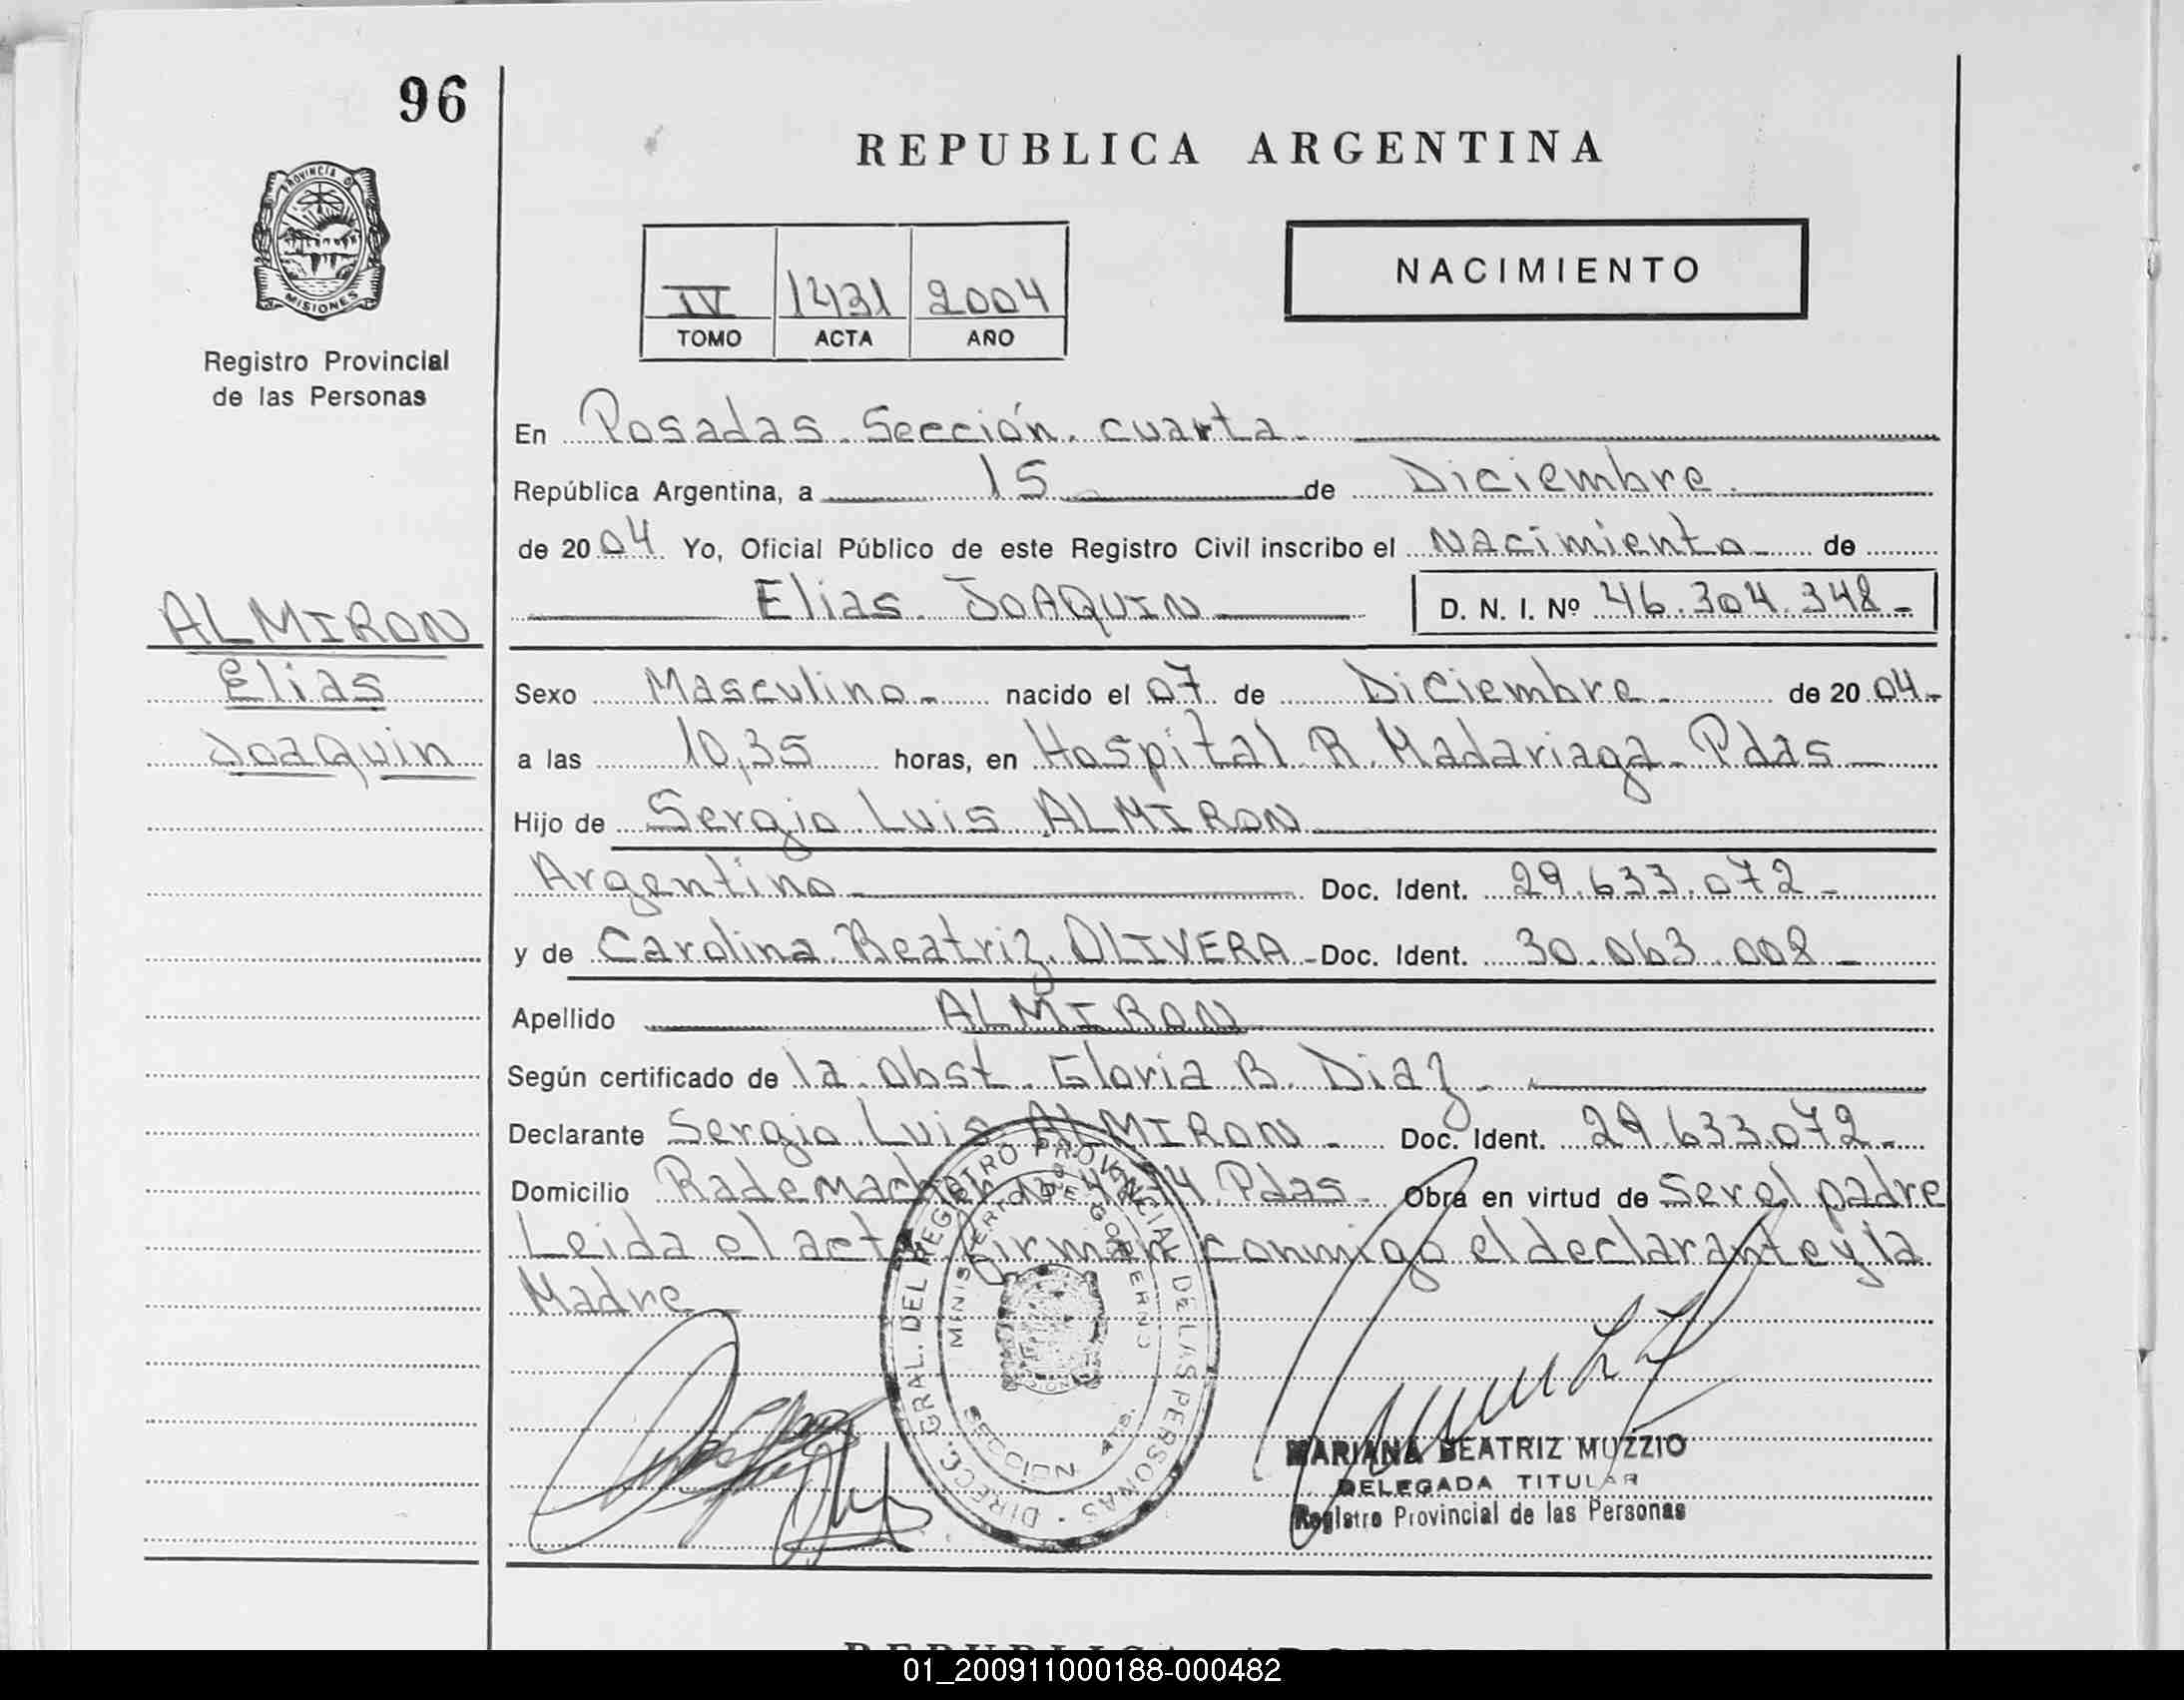 96
REPUBLICA ARGENTINA
PROVINCIA D
MISIONES
Registro Provincial
de las Personas
NACIMIENTO
IV 1431 2004
TOMO ACTA AÑO
En Posadas Sección cuarta
República Argentina, a 15 de Diciembre
de 2004 Yo, Oficial Público de este Registro Civil inscribo el Nacimiento de
Elias JOAQUIN D. N. I. Nº 46.304.348-
ALMIRON
Elias
Joaquin
Sexo Masculino- nacido el 07 de Diciembre- de 2004-
a las 10,35 horas, en Hospital R. Madariaga- Pdas
Hijo de Sergio Luis ALMIRON
Argentino- Doc. Ident. 29.633.072-
y de Carolina Beatriz OLIVERA- Doc. Ident. 30.063.008-
Apellido ALMIRON
Según certificado de la obst. Gloria B. Diaz-
Declarante Sergio Luis ALMIRON- Doc. Ident. 29.633.072-
Domicilio Rademacher Pdas- Obra en virtud de Ser el padre
Leida el acta firman conmigo el declarante y la
Madre
DIRECC. GRAL. DEL REGISTRO PROVINCIAL DE LAS PERSONAS
MINISTERIO DE GOBIERNO
SECCION 4TA.
MARIANA BEATRIZ MUZZIO
DELEGADA TITULAR
Registro Provincial de las Personas
01_200911000188-000482